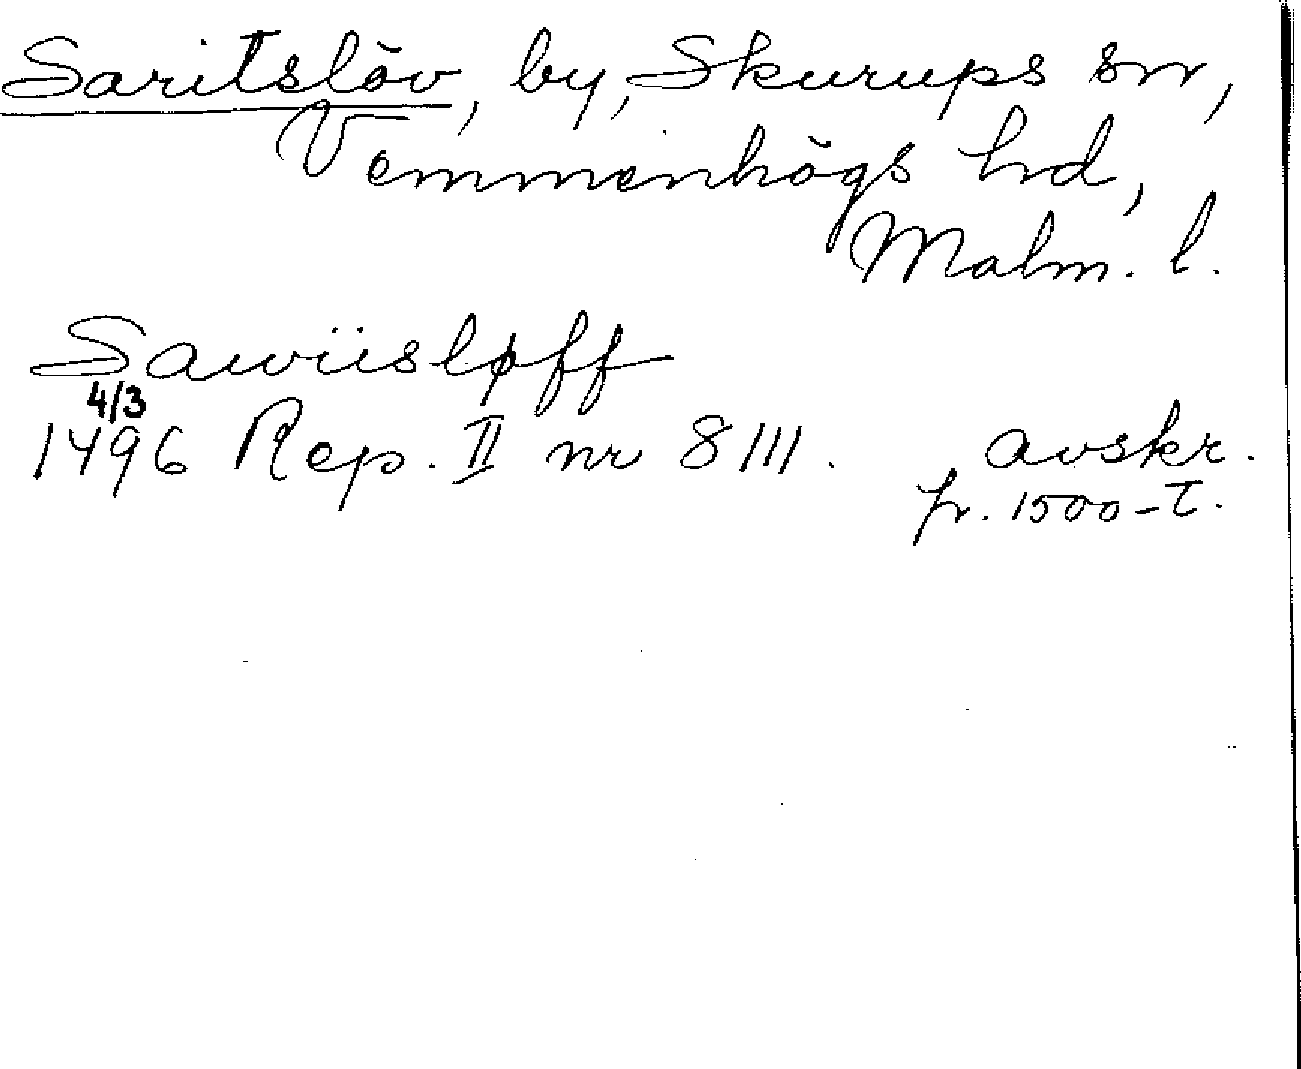 Saritslöv, by, Skurups sn,
Vemmenhögs hd,
Malm. l.
Sawiisløff
4/3
1496 Rep. II nr 8111. avskr.
fr. 1500-t.